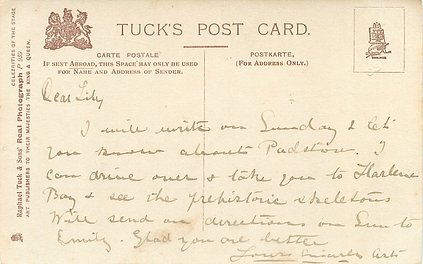 TUCK'S POST CARD.
CARTE POSTALE
IF SENT ABROAD, THIS SPACE MAY ONLY BE USED
FOR NAME AND ADDRESS OF SENDER.
POSTKARTE,
(FOR ADDRESS ONLY.)
CELEBRITIES OF THE STAGE
Raphael Tuck & Sons' Real Photograph P 539
ART PUBLISHERS TO THEIR MAJESTIES THE KING & QUEEN.
Dear Lily
I will write on Sunday & let
you know about Padstow. I
can drive over & take you to Harlene
Bay & see the prehistoric skeletons
Will send on directions on Sun to
Emily. Glad you are better
Yours sincerely